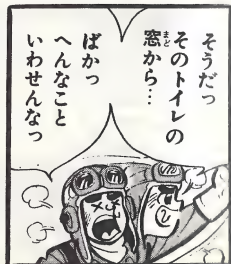 そうだっ
そのトイレの
窓から…
まど
ばかっ
へんなこと
いわせんなっ